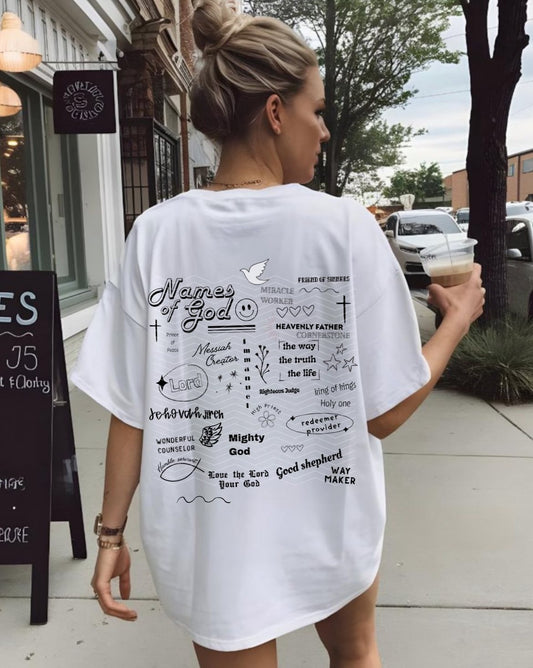 Names
of God
FRIEND OF SINNERS
MIRACLE
WORKER
Prince
of
Peace
HEAVENLY FATHER
CORNERSTONE
Messiah
Creator
immanuel
the way
the truth
the life
Lord
Righteous Judge
king of kings
Holy one
Jehovah Jireh
High Priest
redeemer
provider
WONDERFUL
COUNSELOR
Mighty
God
Humble servant
Love the Lord
Your God
Good shepherd
WAY
MAKER
ES
J5